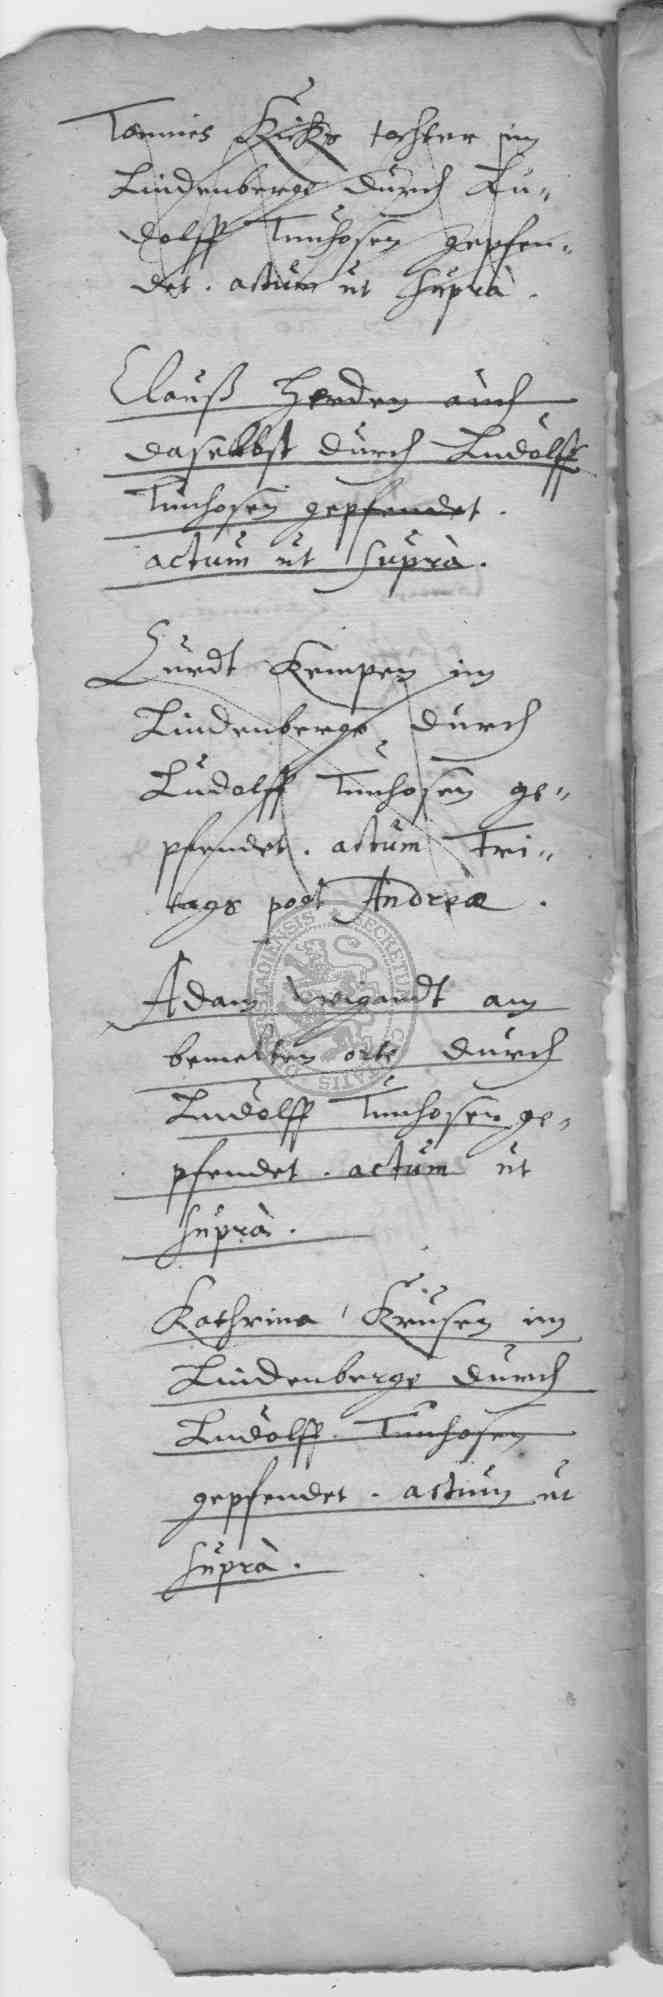 Tonnies Kicks tochter im
Lindenberge durch Lu-
dolff Tunhosen gepfen-
det. actum ut suprà.
Clauß Herden auch
daselbst durch Ludolff
Tunhosen gepfendet.
actum ut suprà.
Curdt Kempen im
Lindenberge durch
Ludolff Tunhosen ge-
pfendet. actum Fri-
tags post Andreæ.
Adam Weigandt am
bemelten orte durch
Ludolff Tunhosen ge-
pfendet. actum ut
suprà.
Kathrina Krusen im
Lindenberge durch
Ludolff Tunhosen
gepfendet. actum ut
suprà.